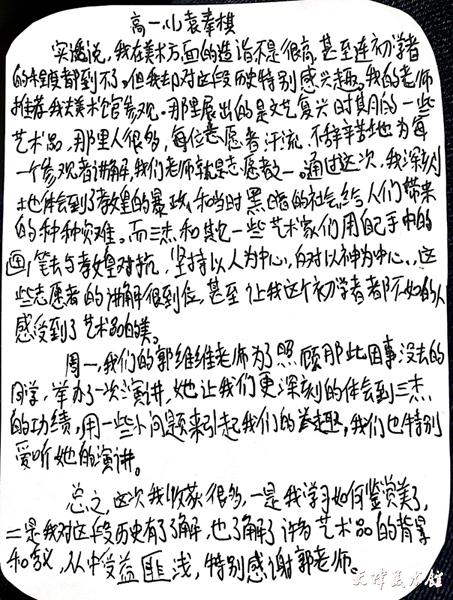 高一小袁奉棋
实话说,我在美术方面的造诣不是很高,甚至连初学者
的程度都到不了,但我却对这段历史特别感兴趣。我的老师
推荐我去美术馆参观。那里展出的是文艺复兴时其月的一些
艺术品,那里人很多,每位志愿者汗流,不辞辛苦地为每
一个参观者讲解,我们老师就是志愿者之一。通过这次,我深刻
地体会到了教皇的暴政,和当时黑暗的社会给人们带来
的种种灾难。而三杰和其它一些艺术家们用自己手中的
画笔去与教皇对抗,坚持以人为中心,反对以神为中心。这
些志愿者的讲解很到位,甚至让我这个初学者都不如的人
感受到了艺术品的美。
周一,我们的郭维维老师为了照顾那些因事没去的
同学,举办了一次演讲,她让我们更深刻的体会到三杰
的功绩,用一些小问题来引起我们的兴趣,我们也特别
爱听她的演讲。
总之,这次我收获很多,一是我学习如何鉴赏美了,
二是我对这段历史有了了解,也了解了许多艺术品的背景
和含义,从中受益匪浅,特别感谢郭老师。
天津美术馆